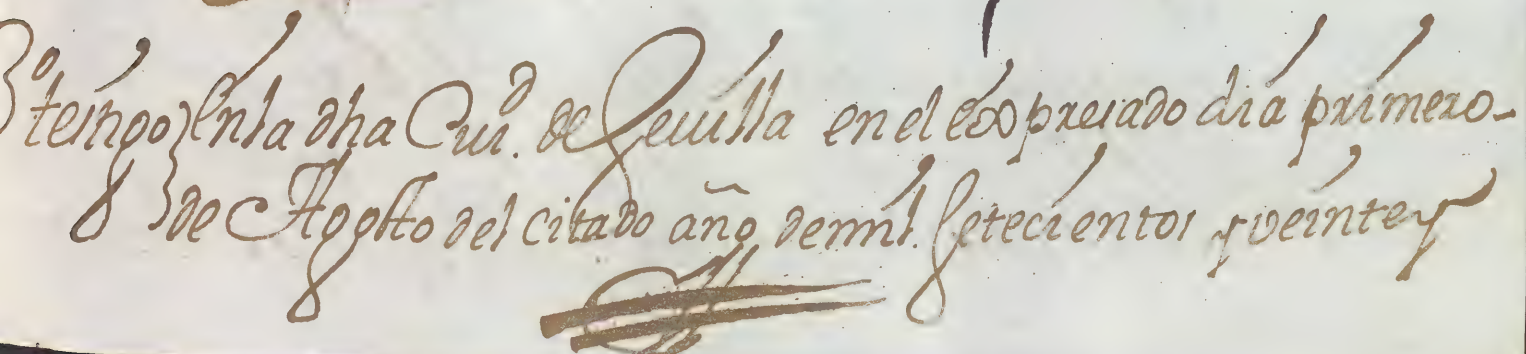 tesigo} En la dha Ciud. de Seuilla en el expresado dia primero-
de Agosto del citado año de mil. Setecientos y veinte y